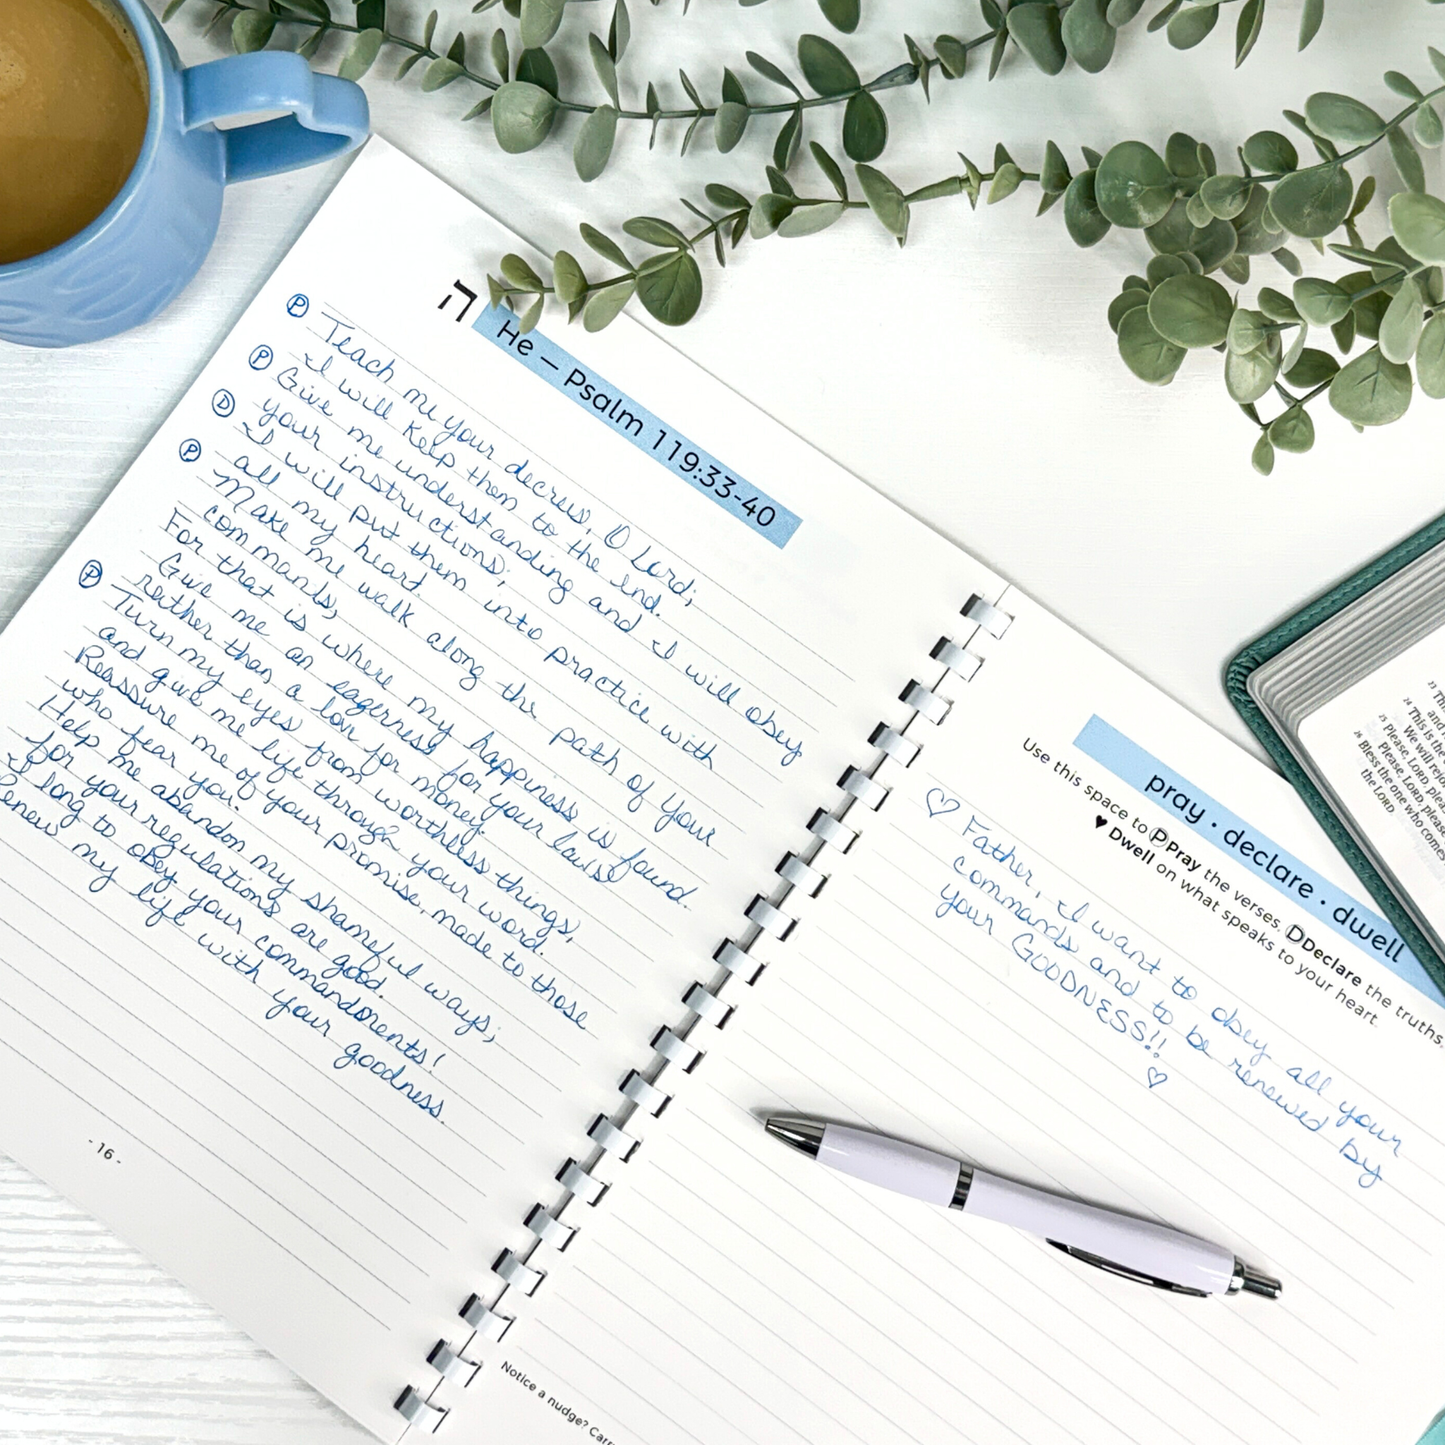 ה He – Psalm 119:33-40
Ⓟ Teach me your decrees, O Lord;
I will keep them to the end.
Ⓟ Give me understanding and I will obey
your instructions;
Ⓓ I will put them into practice with
all my heart.
Ⓟ Make me walk along the path of your
commands,
For that is where my happiness is found.
Give me an eagerness for your laws
rather than a love for money.
Ⓟ Turn my eyes from worthless things,
and give me life through your word.
Reassure me of your promise, made to those
who fear you.
Help me abandon my shameful ways;
for your regulations are good.
I long to obey your commandments!
Renew my life with your goodness.
- 16 -
pray · declare · dwell
Use this space to Ⓟ Pray the verses. Ⓓ Declare the truths.
♥ Dwell on what speaks to your heart.
♡ Father, I want to obey all your
commands and to be renewed by
your GOODNESS!! ♡
Notice a nudge?
24 This is the
We will rejoi
25 Please, LORD,
Please, LORD, please
26 Bless the one who comes
the LORD